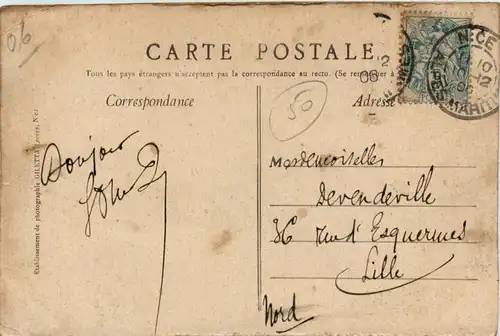 06
CARTE POSTALE
Tous les pays étrangers n'acceptent pas la correspondance au recto. (Se renseigner à
Correspondance
50
Adresse
NICE
ALPES MARIT
Bonjour
Mesdemoiselles
Devendeville
36 rue d'Esquermes
Lille
Nord
Etablissement de photographie GILETTA